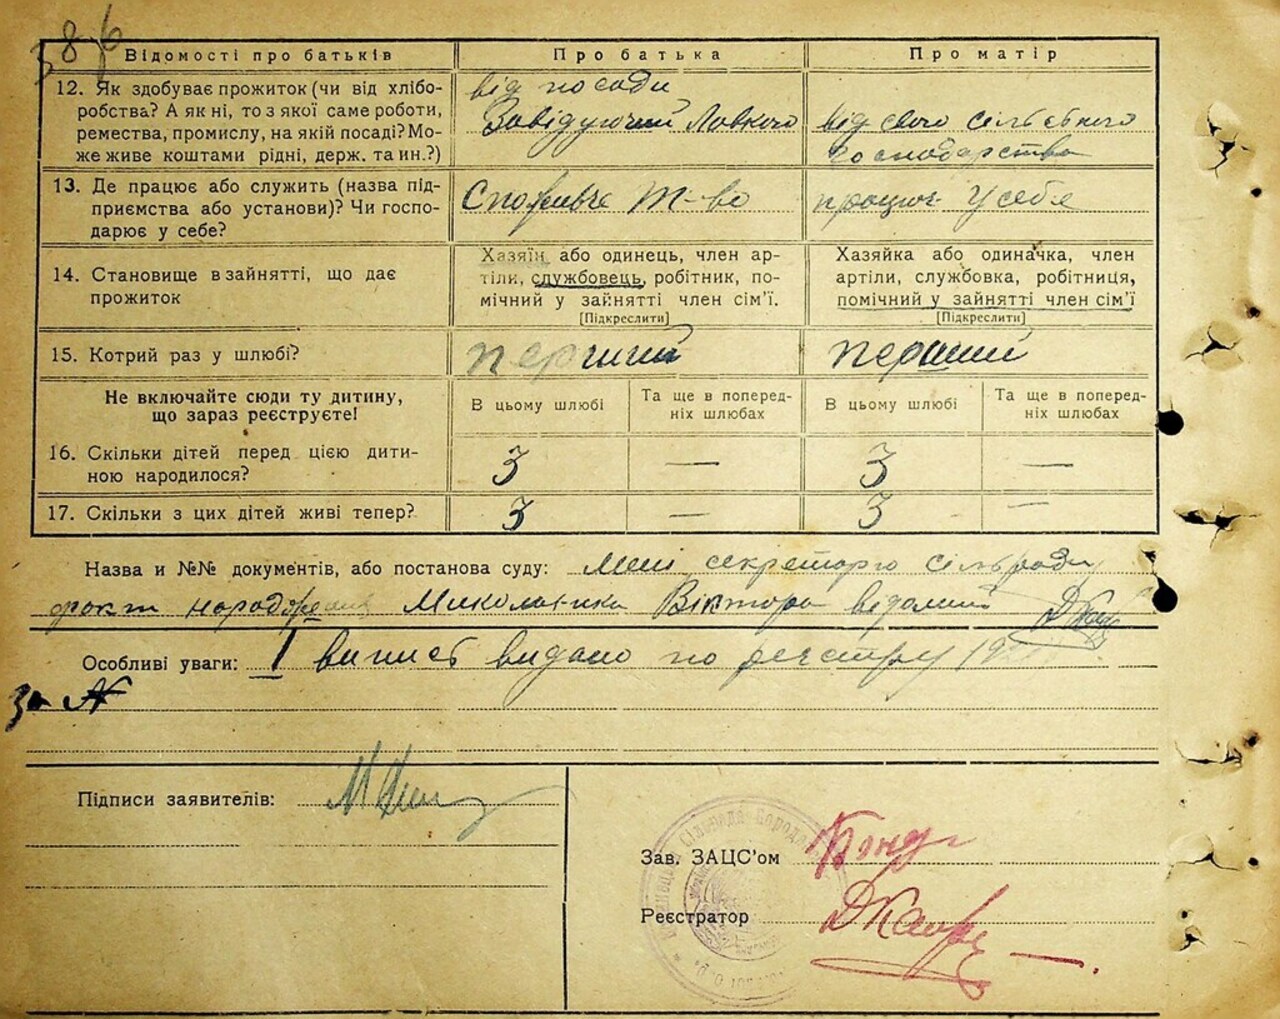 386
Відомості про батьків
Про батька
Про матір
12. Як здобуває прожиток (чи від хлібо-
робства? А як ні, то з якої саме роботи,
ремества, промислу, на якій посаді? Мо-
же живе коштами рідні, держ. та ин.?)
від посади
Завідуючий
від свого сільського
господарства
13. Де працює або служить (назва під-
приємства або установи)? Чи госпо-
дарює у себе?
Споживче Т-во
працює у себе
14. Становище в зайнятті, що дає
прожиток
Хазяїн або одинець, член ар-
тіли, службовець, робітник, по-
мічний у зайнятті член сім'ї.
[Підкреслити]
Хазяйка або одиначка, член
артіли, службовка, робітниця,
помічний у зайнятті член сім'ї
[Підкреслити]
15. Котрий раз у шлюбі?
перший
перший
Не включайте сюди ту дитину,
що зараз реєструєте!
В цьому шлюбі
Та ще в поперед-
ніх шлюбах
В цьому шлюбі
Та ще в поперед-
ніх шлюбах
16. Скільки дітей перед цією дити-
ною народилося?
3
—
3
—
17. Скільки з цих дітей живі тепер?
3
—
3
—
Назва и №№ документів, або постанова суду: Мені секретарю сільради
факт народження Віктора відомий
Особливі уваги: 1 випис видано по реєстру 19
за №
Підписи заявителів:
Зав. ЗАЦС'ом
Реєстратор